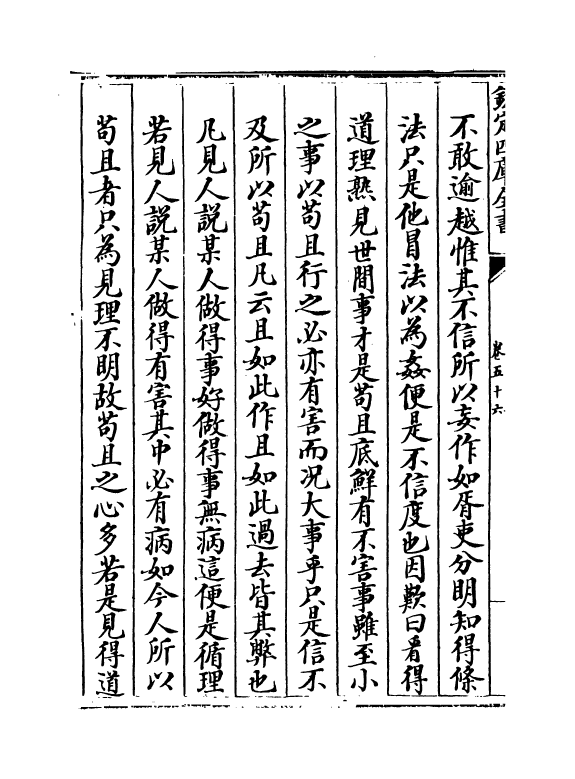 欽定四庫全書
卷五十六
不敢逾越惟其不信所以妄作如胥吏分明知得條
法只是他冒法以為姦便是不信度也因歎曰看得
道理熟見世間事才是苟且底鮮有不害事雖至小
之事以苟且行之必亦有害而况大事乎只是信不
及所以苟且凡云且如此作且如此過去皆其弊也
凡見人說某人做得事好做得事無病這便是循理
若見人說某人做得有害其中必有病如今人所以
苟且者只為見理不明故苟且之心多若是見得道